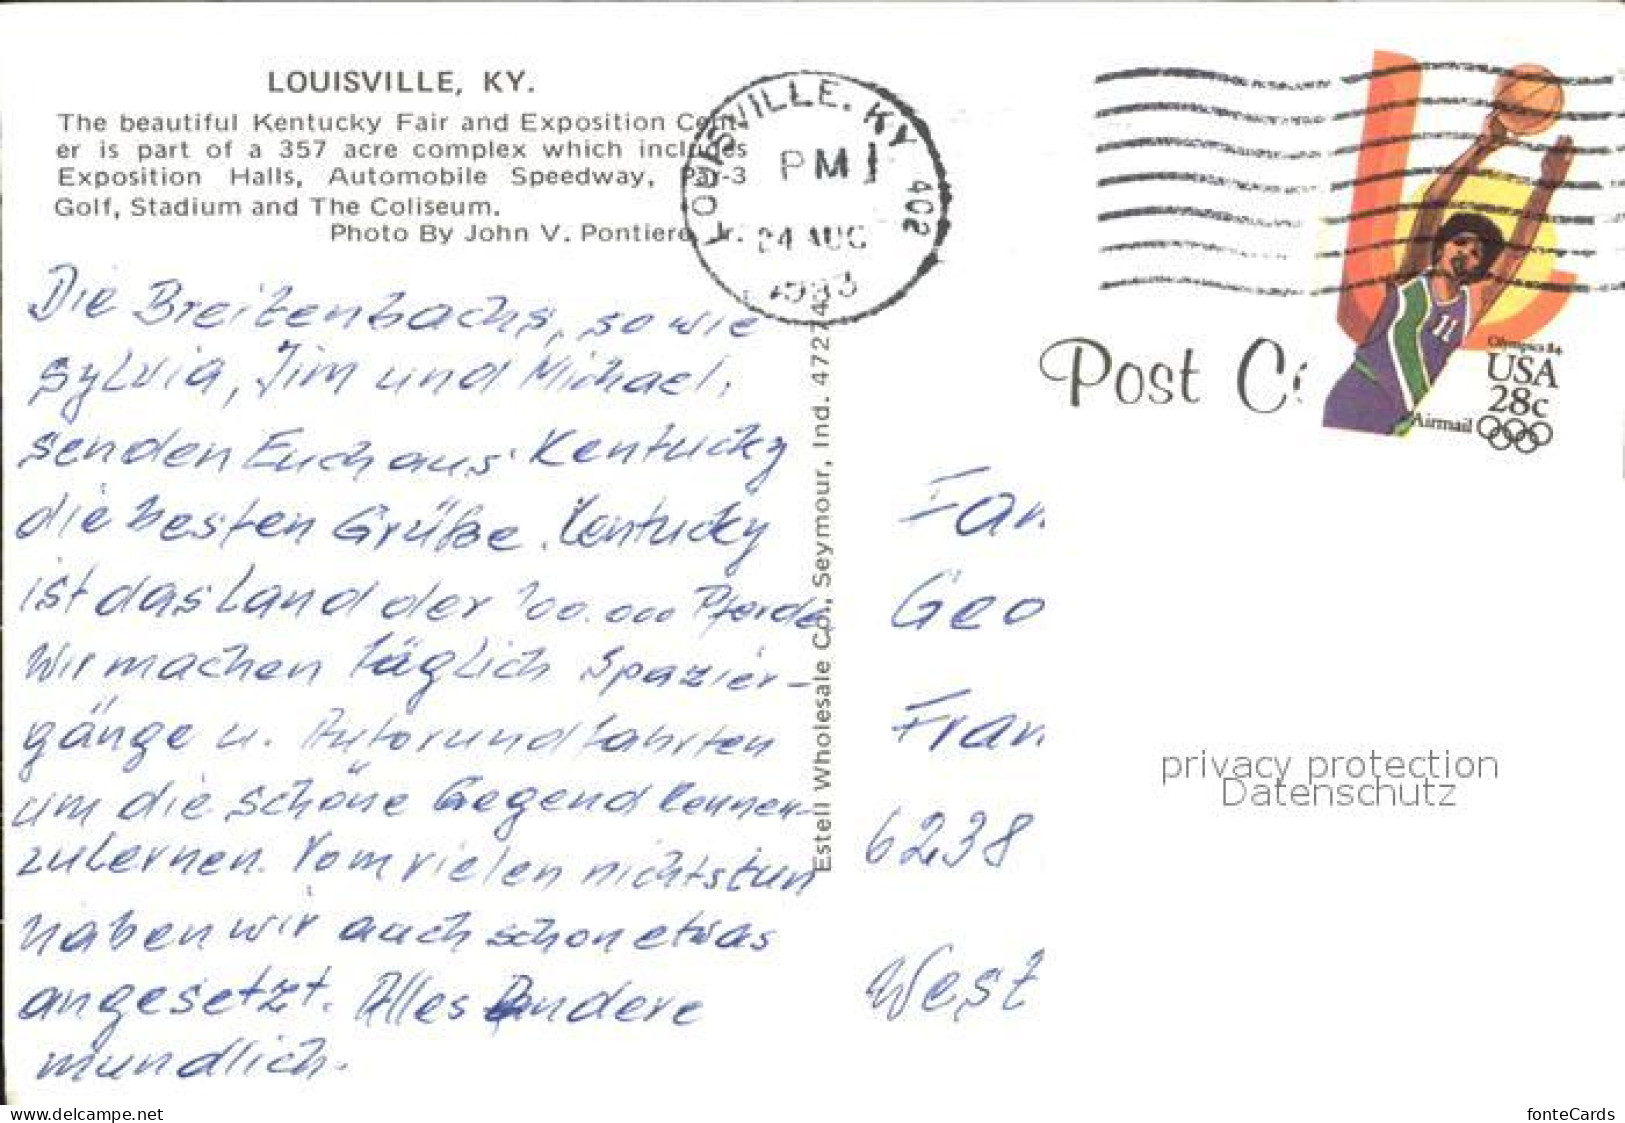 LOUISVILLE, KY.
The beautiful Kentucky Fair and Exposition Cent-
er is part of a 357 acre complex which includes
Exposition Halls, Automobile Speedway, Par-3
Golf, Stadium and The Coliseum.
Photo By John V. Pontiero, Jr.
LOUISVILLE. KY 402
PM
24 AUG
1983
Olympics 84
USA
28c
Airmail
Post C
Die Breitenbachs, sowie
Sylvia, Jim und Michael,
senden Euch aus Kentucky
die besten Grüße. Kentucky
ist das Land der 100.000 Pferde
Wir machen täglich Spazier-
gänge u. Autorundfahrten
um die schöne Gegend kennen-
zulernen. Vom vielen nichtstun
haben wir auch schon etwas
angesetzt. Alles Andere
mundlich.
Estell Wholesale Co., Seymour, Ind. 47274
Fam
Geo
Fran
6238
West
privacy protection
Datenschutz
www.delcampe.net
fonteCards